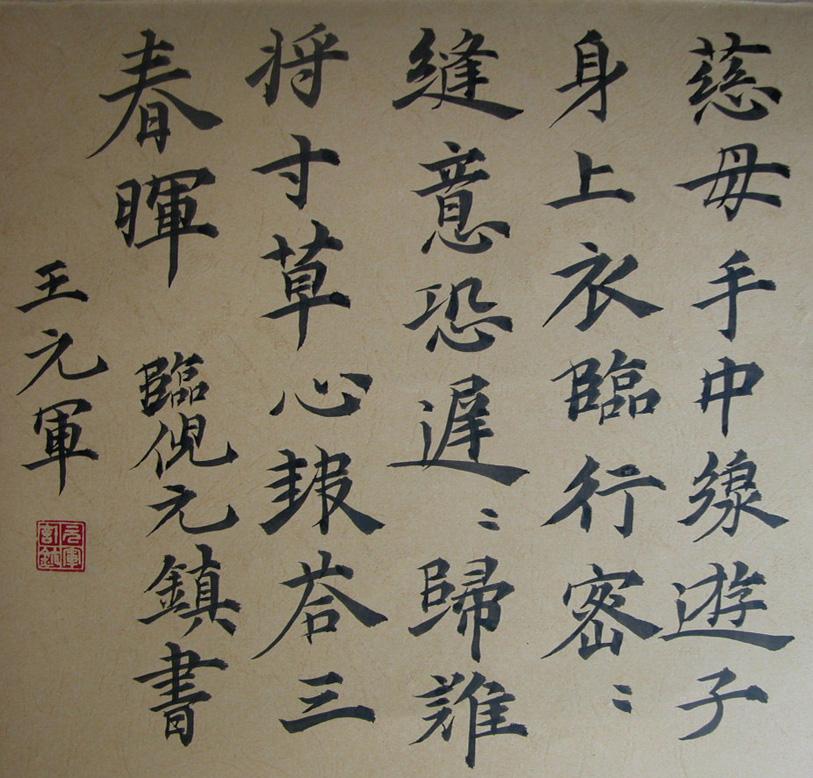 慈母手中線遊子
身上衣臨行密〻
縫意恐遲〻歸誰
将寸草心報荅三
春暉 臨倪元鎮書
王元軍
元軍